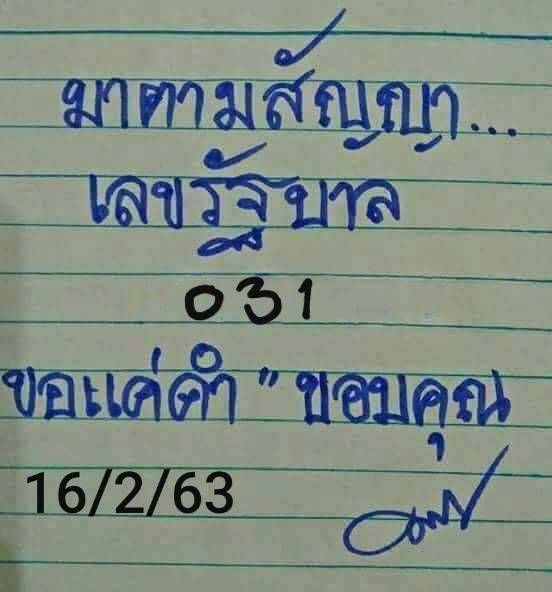 มาตามสัญญา...
เลขรัฐบาล
031
ขอแค่คำ " ขอบคุณ
16/2/63